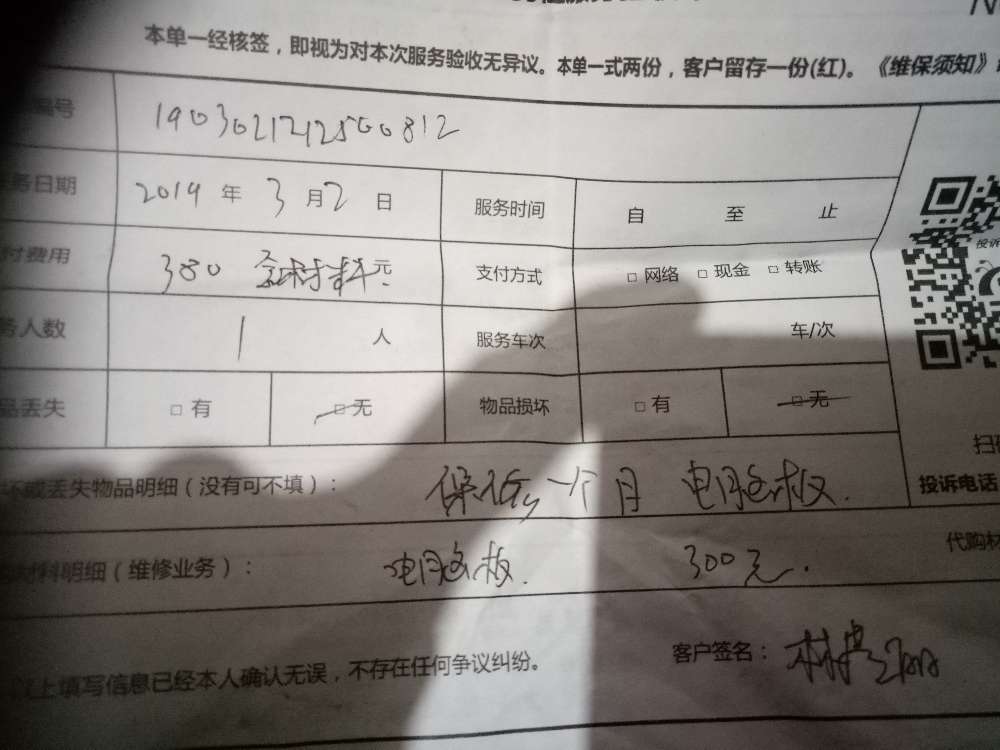 本单一经核签，即视为对本次服务验收无异议。本单一式两份，客户留存一份(红)。《维保须知》
编号 1903021212500812
务日期 2019 年 3 月 2 日 服务时间 自 至 止
付费用 380 含材料 元 支付方式 □ 网络 □ 现金 □ 转账
务人数 1 人 服务车次 车/次
品丢失 □ 有 □ 无 物品损坏 □ 有 □ 无
坏或丢失物品明细（没有可不填）： 保修 一个月 电脑板.
投诉电话
材料明细（维修业务）： 电脑板. 300元.
代购材
以上填写信息已经本人确认无误，不存在任何争议纠纷。
客户签名：